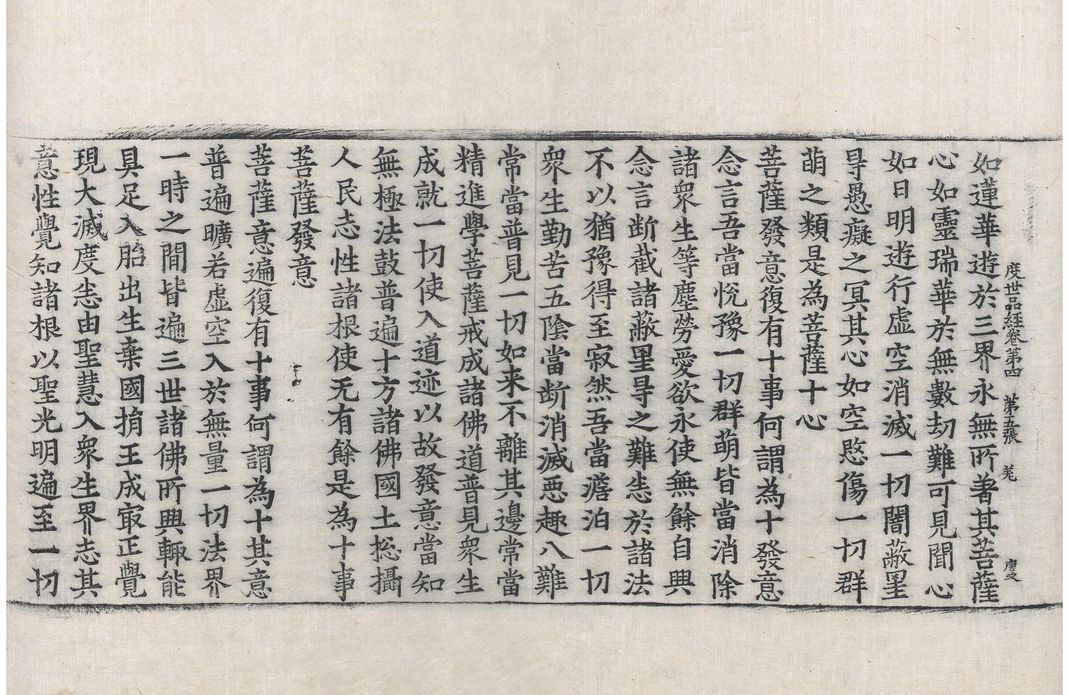 度世品經卷第四　第五張　羌
如蓮華遊於三界永無所著其菩薩
心如靈瑞華於無數劫難可見聞心
如日明遊行虛空消滅一切闇蔽罣
㝵愚癡之冥其心如空愍傷一切群
萌之類是為菩薩十心
菩薩發意復有十事何謂為十發意
念言吾當悅豫一切群萌皆當消除
諸衆生等塵勞愛欲永使無餘自興
念言断截諸蔽罣㝵之難悉於諸法
不以猶豫得至寂然吾當澹泊一切
衆生勤苦五隂當断消滅惡趣八難
常當普見一切如来不離其邊常當
精進學菩薩戒成諸佛道普見衆生
成就一切使入道迹以故發意當知
無極法鼓普遍十方諸佛國土捴攝
人民志性諸根使无有餘是為十事
菩薩發意
菩薩意遍復有十事何謂為十其意
普遍曠若虛空入於無量一切法界
一時之間皆遍三世諸佛所興輙能
具足入胎出生棄國捐王成㝡正覺
現大滅度悉由聖慧入衆生界志其
意性覺知諸根以聖光明遍至一切